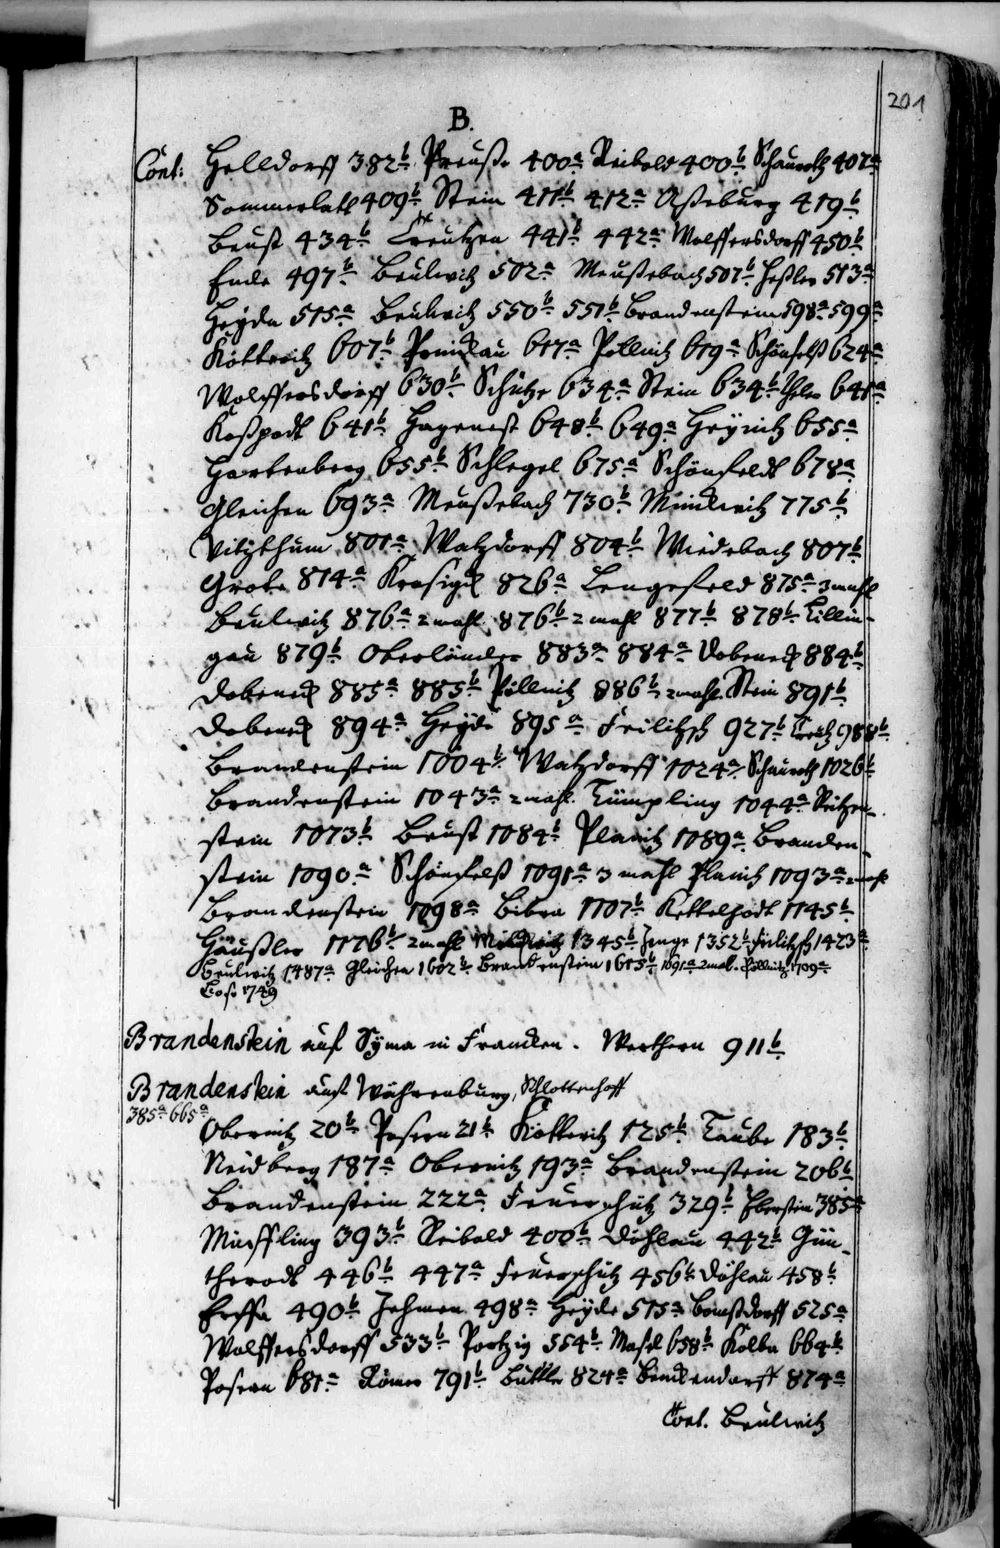 201
B.
Cont: Helldorff 382b Preuße 400a Reibold 400b Schauroth 407a
Sommerlatt 409b Stein 411b 412a Aßeburg 419b
Beust 434b Creutzen 441b 442a Wolffersdorff 450b
Ende 497b Beulwitz 502a Meußebach 507b Heßler 513a
Heyde 515a Beulwitz 550b 551b Brandenstein 598a 599a
Kötteritz 607b 617a Pöllnitz 619a Schönfelß 624a
Wolffersdorff 630b Schütze 634a Stein 634b 641a
Koßpodt 641b Hagenest 648b 649a Heynitz 655a
Hartenberg 655b Schlegel 675a Schönfeldt 678a
Gleichen 693a Meußebach 730b Minckwitz 775b
Vitzthum 801a Watzdorff 804b Wiedebach 807b
Grote 814a Krosigk 826a Lengefeld 875a 3 mahl
Beulwitz 876a 2 mahl 876b 2 mahl 877b 878b Dillin-
gau 879b Oberländer 883a 884a Dobeneck 884b
Dobeneck 885a 885b Pöllnitz 886b 2 mahl Stein 891b
Dobeneck 894a Heyde 895a Feilitzsch 927b 988b
Brandenstein 1004b Watzdorff 1024a Schauroth 1026b
Brandenstein 1043a 2 mahl Tümpling 1044a Reitzen-
stein 1073b Beust 1084b Planitz 1089a Branden-
stein 1090a Schönfelß 1091a 3 mahl Planitz 1093a 2 mahl
Brandenstein 1098a Bibra 1107b Kettelhodt 1145b
Häußler 1176b 2 mahl Minckwitz 1345b Zenge 1352b Feilitzsch 1423a
Beulwitz 1487a Gleichen 1602b Brandenstein 1615b 1691a 2 mal. Pöllnitz 1709a
1749
Brandenstein auf Syma in Francken. Werthern 911b
Brandenstein auf Währenburg, Schlottenhoff
385a 665a
Obernitz 20b Posern 21b Kötteritz 125b Taube 183b
Neidberg 187a Obernitz 193a Brandenstein 206b
Brandenstein 222a Feuerschütz 329b Eberstein 385a
Müffling 393b Reibold 400b Döhlau 442b Gün-
therodt 446b 447a Feuerschütz 456b Döhlau 458b
Erffa 490b Zehmen 498a Heyde 515a Bomßdorff 525a
Wolffersdorff 533b Portzig 554b 658b Kolbe 664b
Posern 681a Römer 791b Büttler 824a Benckendorff 874a
Cont. Beulwitz